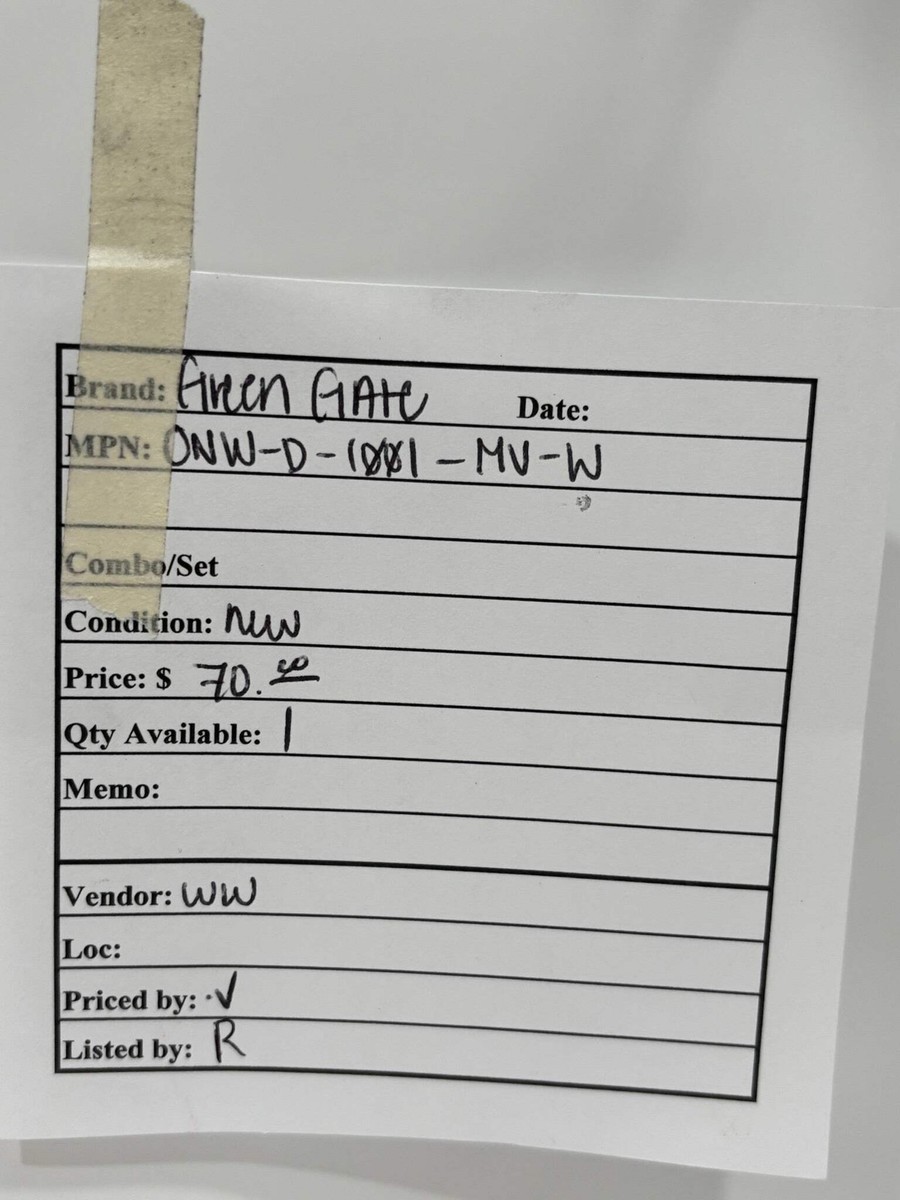 Brand: Green GAte Date:
MPN: ONW-D-1001-MV-W
Combo/Set
Condition: New
Price: $ 70.00
Qty Available: 1
Memo:
Vendor: WW
Loc:
Priced by: ·V
Listed by: R